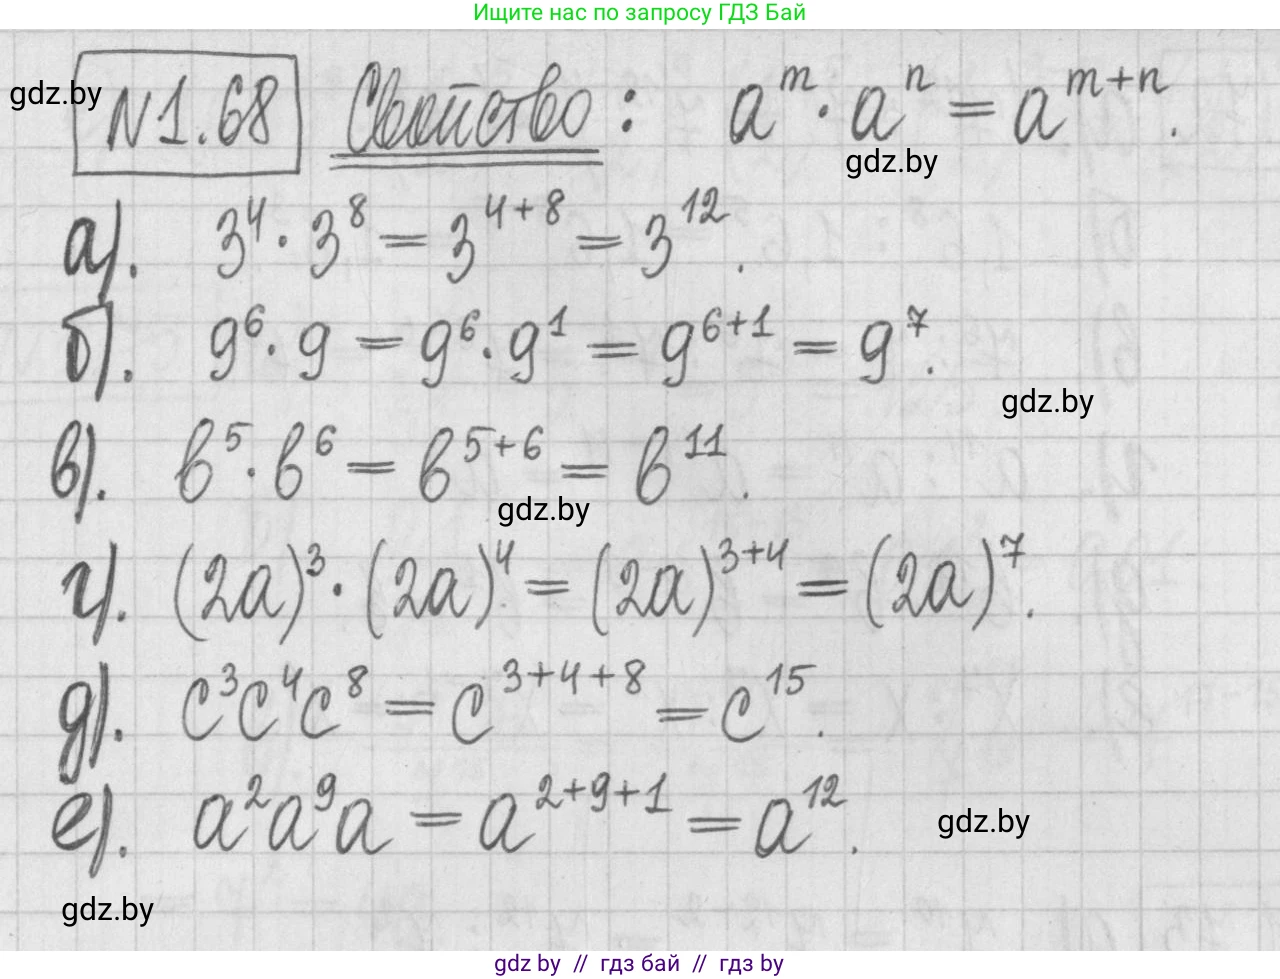 Ищите нас по запросу ГДЗ Бай
gdz.by
N1.68 Свойство: a^m · a^n = a^{m+n}.
gdz.by
а). 3^4 · 3^8 = 3^{4+8} = 3^{12}.
б). 9^6 · 9 = 9^6 · 9^1 = 9^{6+1} = 9^7.
gdz.by
в). b^5 · b^6 = b^{5+6} = b^{11}.
gdz.by
г). (2a)^3 · (2a)^4 = (2a)^{3+4} = (2a)^7.
д). c^3c^4c^8 = c^{3+4+8} = c^{15}.
е). a^2a^9a = a^{2+9+1} = a^{12}.
gdz.by
gdz.by
gdz by // гдз бай // гдз by